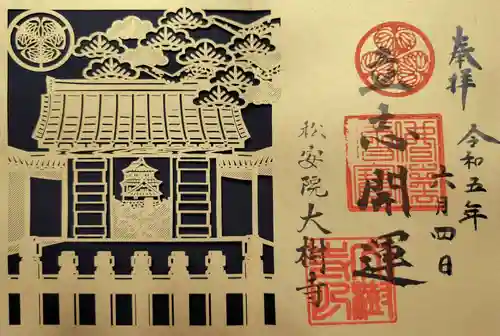 奉拝
令和五年
六月四日
志開運
松安院
大樹寺